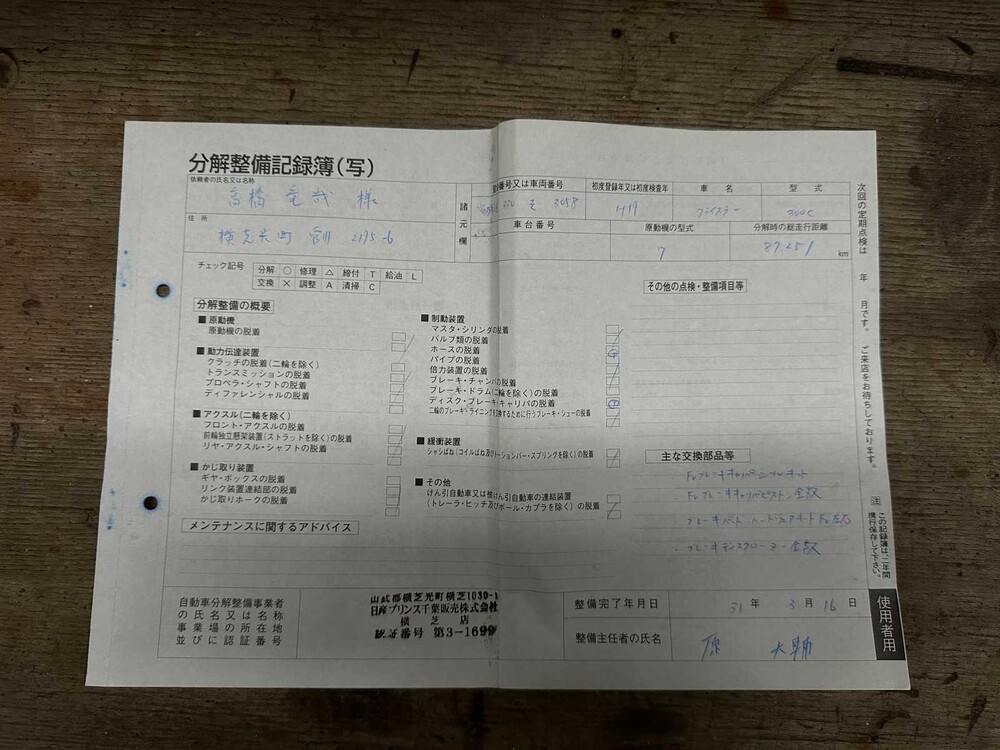 分解整備記録簿(写)
依頼者の氏名又は名称
高橋 竜哉 様
住所
横芝光町 宮川 2195-6
諸元欄
番号又は車両番号
そ 3058
初度登録年又は初度検査年
H19
車名
クライスラー
型式
300C
車台番号
原動機の型式
7
分解時の総走行距離
87,251 km
チェック記号
分解 ○ 修理 △ 締付 T 給油 L
交換 × 調整 A 清掃 C
その他の点検・整備項目等
分解整備の概要
■原動機
原動機の脱着
■動力伝達装置
クラッチの脱着(二輪を除く)
トランスミッションの脱着
プロペラ・シャフトの脱着
ディファレンシャルの脱着
■アクスル(二輪を除く)
フロント・アクスルの脱着
前輪独立懸架装置(ストラットを除く)の脱着
リヤ・アクスル・シャフトの脱着
■かじ取り装置
ギヤ・ボックスの脱着
リンク装置連結部の脱着
かじ取りホークの脱着
■制動装置
マスタ・シリンダの脱着
バルブ類の脱着
ホースの脱着
パイプの脱着
倍力装置の脱着
ブレーキ・チャンバの脱着
ブレーキ・ドラム(二輪を除く)の脱着
ディスク・ブレーキ・キャリパの脱着
二輪のブレーキ・ライニングを交換するために行うブレーキ・シューの脱着
■緩衝装置
シャシばね(コイルばね及びトーションバー・スプリングを除く)の脱着
■その他
けん引自動車又は被けん引自動車の連結装置
(トレーラ・ヒッチ及びボール・カプラを除く)の脱着
主な交換部品等
Frブレーキキャリパーシールキット
Frブレーキキャリパピストン 全数
ブレーキパッド
ブレーキディスクローター 全数
メンテナンスに関するアドバイス
自動車分解整備事業者
の氏名又は名称
事業場の所在地
並びに認証番号
山武郡横芝光町横芝1030-1
日産プリンス千葉販売株式会社
横芝店
認証番号 第3-1699
整備完了年月日
31年 3月 16日
整備主任者の氏名
原 大輔
次回の定期点検は 年 月です。ご来店をお待ちしております。
注 この記録簿は、二年間携行保存して下さい。
使用者用